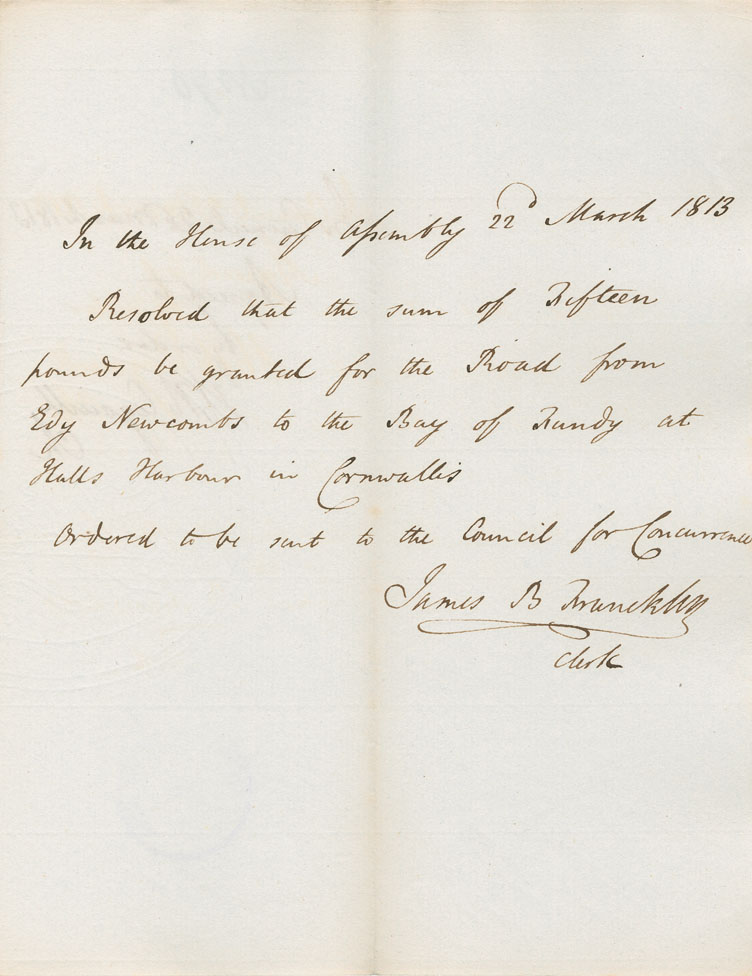 In the House of Assembly 22d March 1813
Resolved that the sum of Fifteen
pounds be granted for the Road from
Edy Newcombs to the Bay of Fundy at
Halls Harbour in Cornwallis
Ordered to be sent to the Council for Concurrence
James B Franckling
Clerk